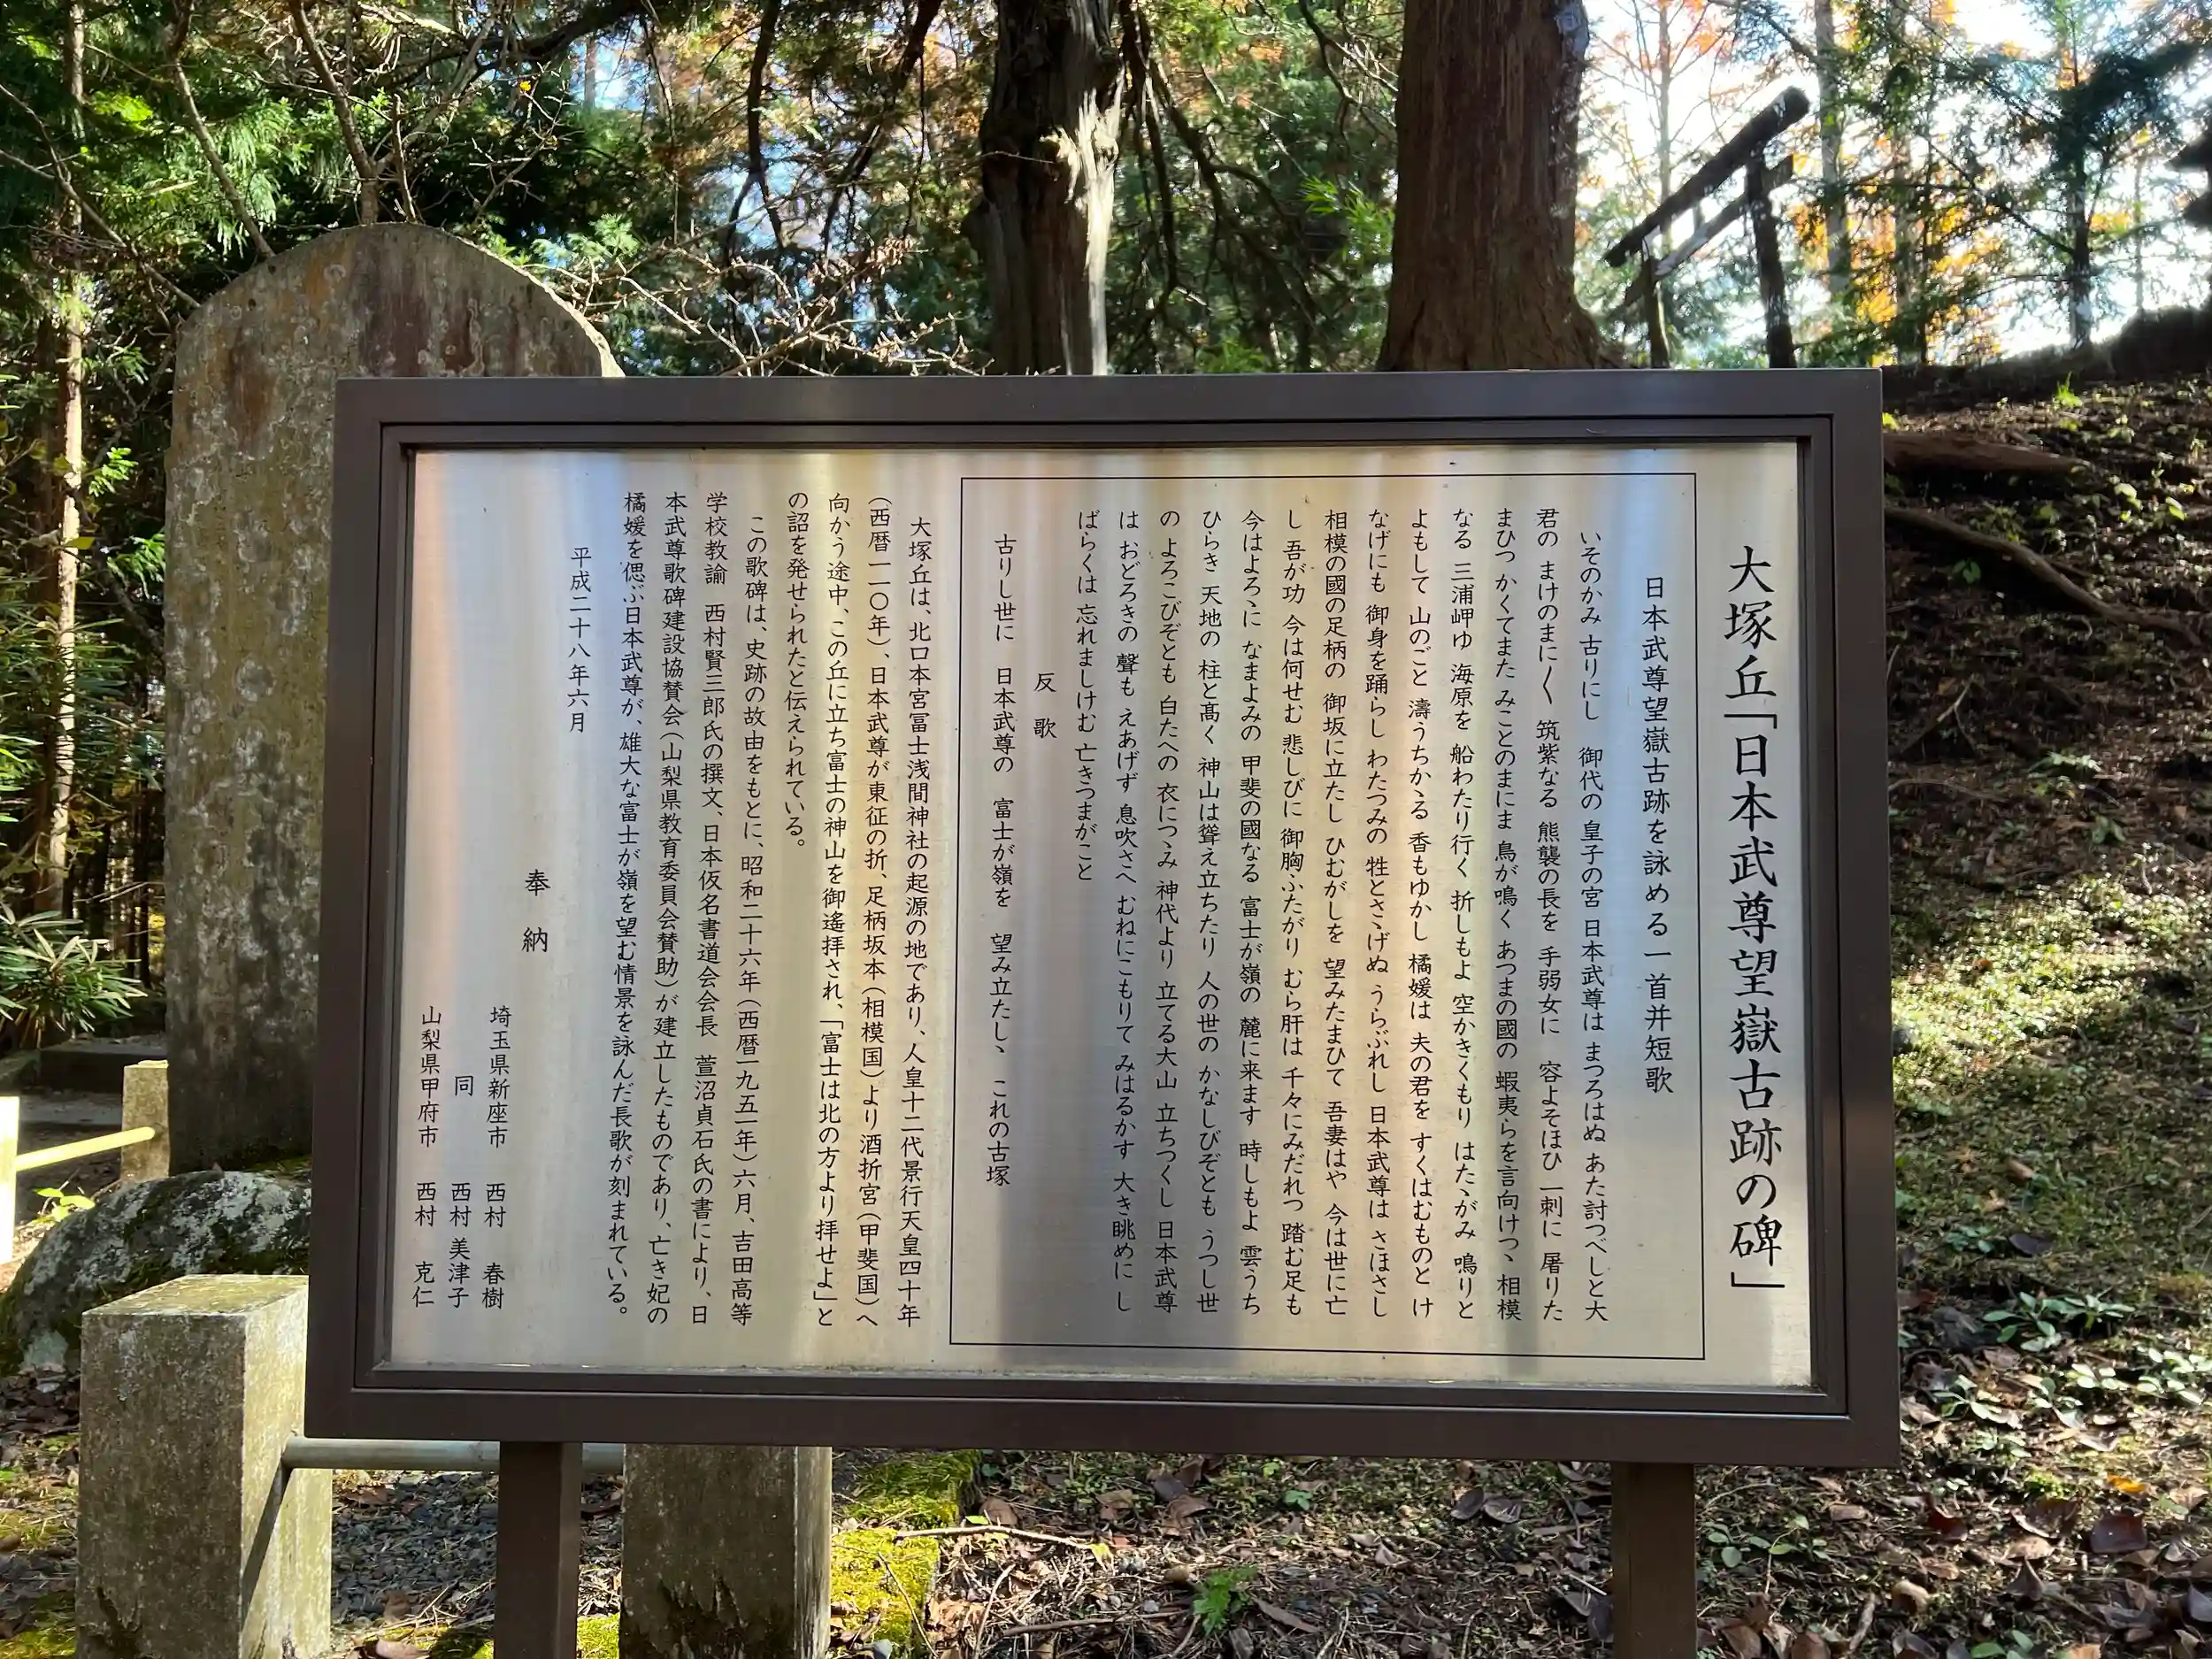 大塚丘「日本武尊望嶽古跡の碑」
日本武尊望嶽古跡を詠める一首并短歌
いそのかみ 古りにし 御代の 皇子の宮 日本武尊は まつろはぬ あた討つべしと大
君の まけのまに〱 筑紫なる 熊襲の長を 手弱女に 容よそほひ 一刺に 屠りた
まひつ かくてまた みことのまにま 鳥が鳴く あつまの國の 蝦夷らを言向けつゝ 相模
なる 三浦岬ゆ 海原を 船わたり行く 折しもよ 空かきくもり はたゝがみ 鳴りと
よもして 山のごと 濤うちかゝる 香もゆかし 橘媛は 夫の君を すくはむものと け
なげにも 御身を踊らし わたつみの 牲とさゝげぬ うらぶれし 日本武尊は さほさし
相模の國の足柄の 御坂に立たし ひむがしを 望みたまひて 吾妻はや 今は世に亡
し 吾が功 今は何せむ 悲しびに 御胸ふたがり むら肝は 千々にみだれつ 踏む足も
今はよろゝに なまよみの 甲斐の國なる 富士が嶺の 麓に来ます 時しもよ 雲うち
ひらき 天地の 柱と髙く 神山は聳え立ちたり 人の世の かなしびぞとも うつし世
の よろこびぞとも 白たへの 衣につゝみ 神代より 立てる大山 立ちつくし 日本武尊
は おどろきの 聲も えあげず 息吹さへ むねにこもりて みはるかす 大き眺めに し
ばらくは 忘れましけむ 亡きつまがこと
反歌
古りし世に 日本武尊の 富士が嶺を 望み立たしゝ これの古塚
大塚丘は、北口本宮冨士浅間神社の起源の地であり、人皇十二代景行天皇四十年
（西暦一一〇年）、日本武尊が東征の折、足柄坂本（相模国）より酒折宮（甲斐国）へ
向かう途中、この丘に立ち富士の神山を御遙拝され、「富士は北の方より拝せよ」と
の詔を発せられたと伝えられている。
この歌碑は、史跡の故由をもとに、昭和二十六年（西暦一九五一年）六月、吉田高等
学校教諭 西村賢三郎氏の撰文、日本仮名書道会会長 萱沼貞石氏の書により、日
本武尊歌碑建設協賛会（山梨県教育委員会賛助）が建立したものであり、亡き妃の
橘媛を偲ぶ日本武尊が、雄大な富士が嶺を望む情景を詠んだ長歌が刻まれている。
平成二十八年六月
奉納
埼玉県新座市 西村 春樹
同 西村 美津子
山梨県甲府市 西村 克仁